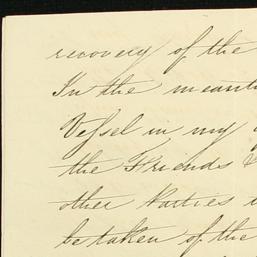 recovery of the
In the meant
Vessel in my
the Friends &
other Parties
be taken of the